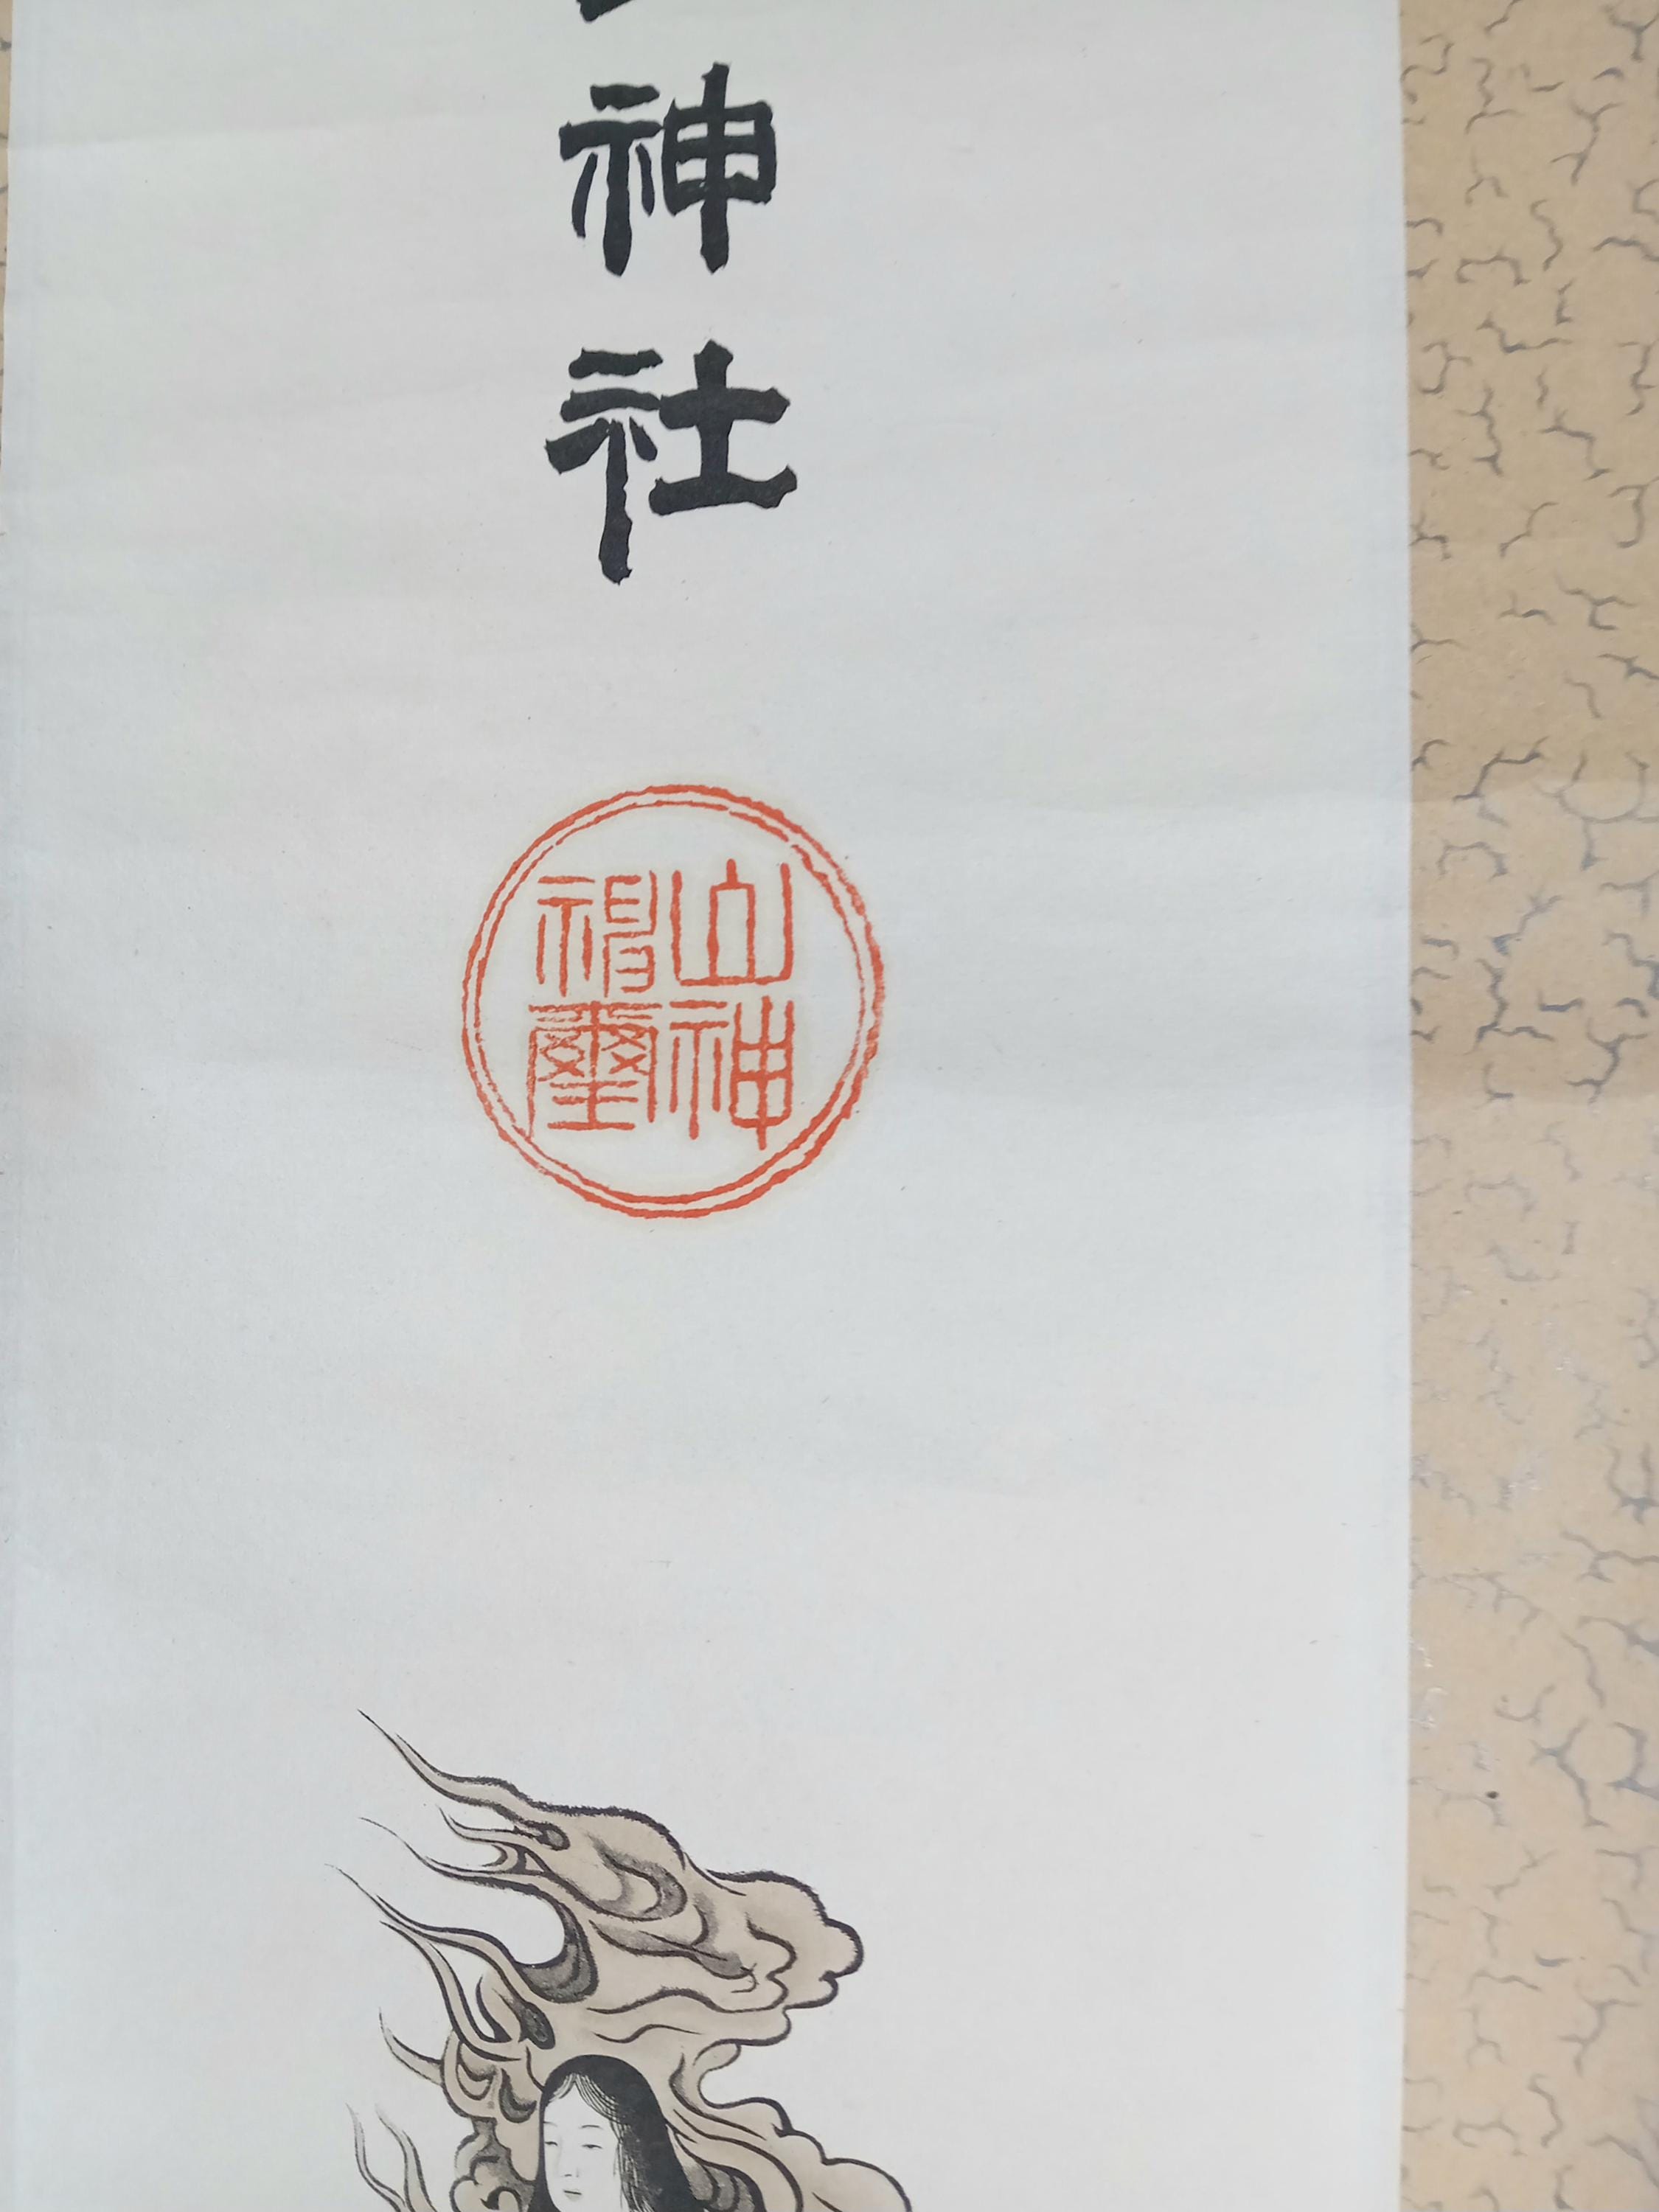 神社
山神
璽